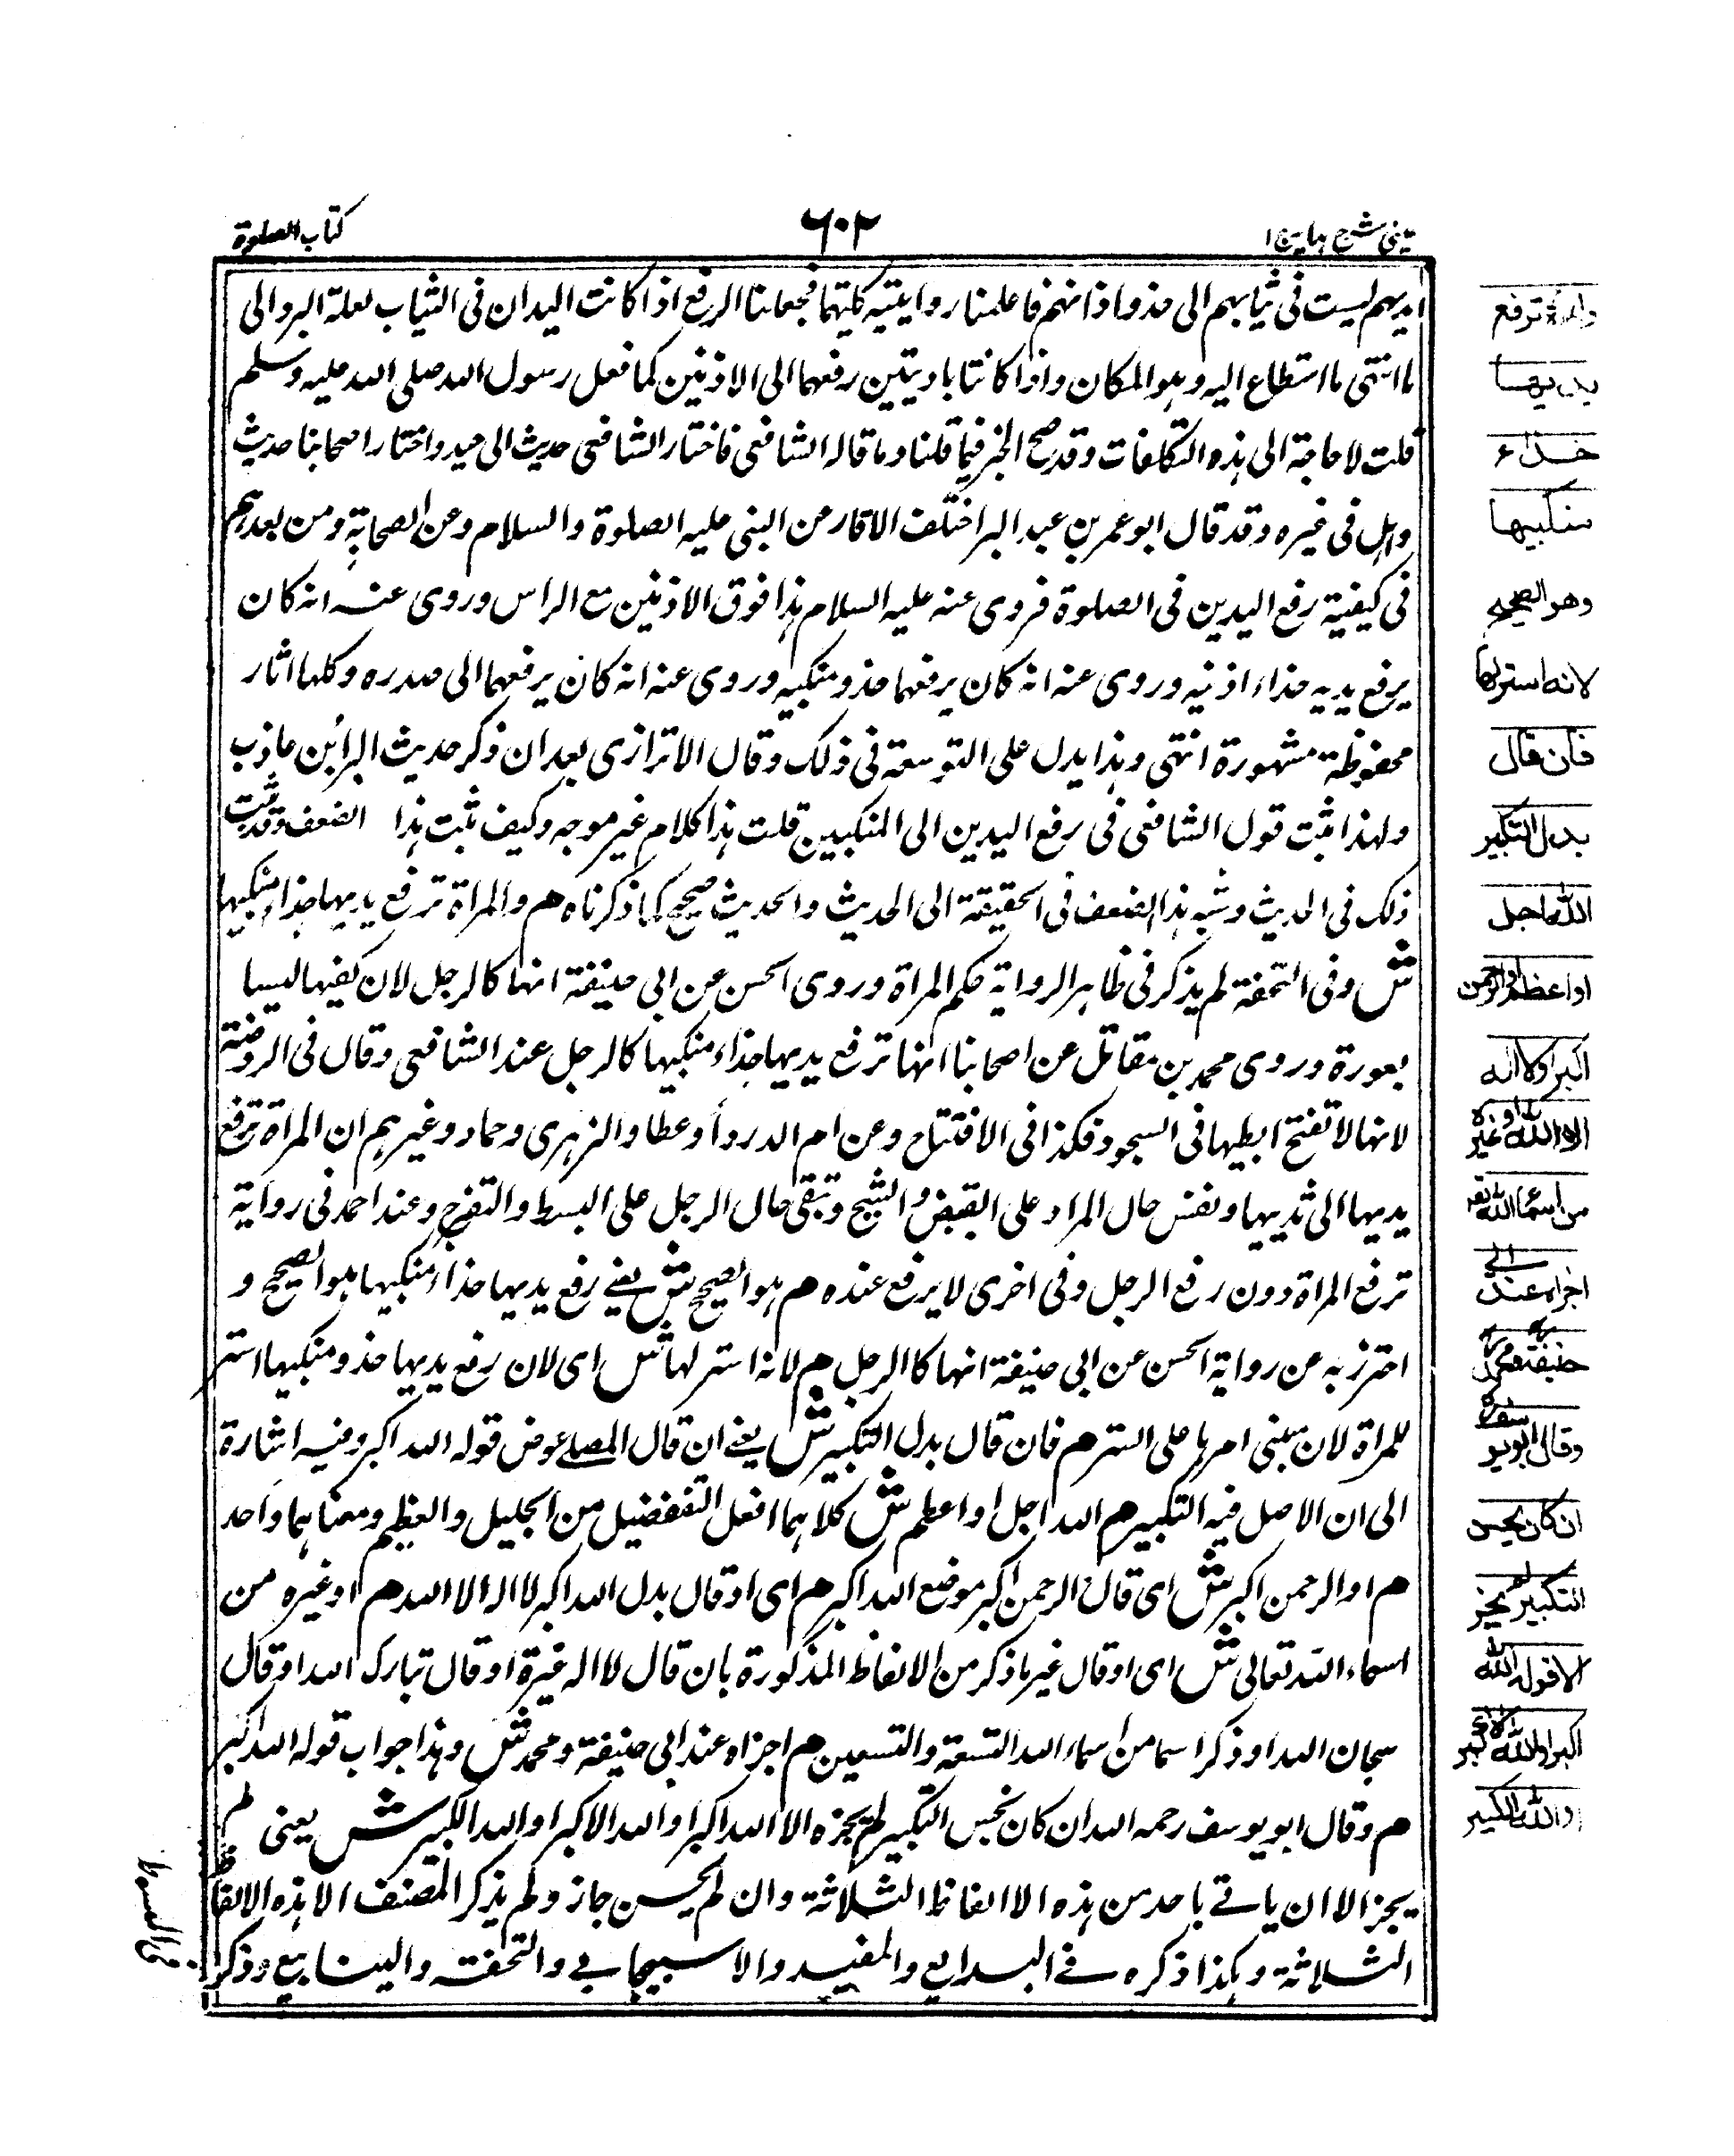 عینی شرح ہدایہ ج ۱
۶۰۲
کتاب الصلوة
ایدیہم لیست فی ثیابہم الی حذو اذانہم فاعلمنا روایتیہ کلیتہما فجعلنا الرفع اذا کانت الیدان فی الثیاب لعلة البرد الی
ما انتہی ما استطاع الیہ وہو المکان واذا کانتا بادیتین رفعہما الی الاذنین کما فعل رسول اللہ صلی اللہ علیہ وسلم
قلت لا حاجة الی ہذہ التکلفات وقد صح الخبر فیما قلنا وما قالہ الشافعی فاختار الشافعی حدیث ابی حمید واختار اصحابنا حدیث
وایل فی غیرہ وقد قال ابو عمر بن عبد البر اختلف الاثار عن النبی علیہ الصلوة والسلام وعن الصحابة ومن بعدہم
فی کیفیة رفع الیدین فی الصلوة فروی عنہ علیہ السلام ہذا فوق الاذنین مع الراس وروی عنہ انہ کان
یرفع یدیہ حذاء اذنیہ وروی عنہ انہ کان یرفعہما حذو منکبیہ وروی عنہ انہ کان یرفعہما الی صدرہ وکلہا اثار
محفوظة مشہورة انتہی وہذا یدل علی التوسعة فی ذلک وقال الاترازی بعد ان ذکر حدیث البراء بن عاذب
ولہذا ثبت قول الشافعی فی رفع الیدین الی المنکبین قلت ہذا کلام غیر موجہ وکیف ثبت ہذا الضعف وقد ثبت
ذلک فی الحدیث وشبہ ہذا الضعف فی الحقیقة الی الحدیث والحدیث صحیح کما ذکرناہ م والمراة ترفع یدیہا حذاء منکبیہا
ش وفی التحفة لم یذکر فی ظاہر الروایة حکم المراة وروی الحسن عن ابی حنیفة انہا کالرجل لان کفیہا لیسا
بعورة وروی محمد بن مقاتل عن اصحابنا انہا ترفع یدیہا حذاء منکبیہا کالرجل عند الشافعی وقال فی الروضة
لانہا لا تفتح ابطیہا فی السجود فکذا فی الافتتاح وعن ام الدرداء وعطا والزہری وحماد وغیرہم ان المراة ترفع
یدیہا الی ثدییہا ونفس حال المراد علی القبض و الشیح وتبقی حال الرجل علی البسط والتفرج وعند احمد فی روایة
ترفع المراة دون رفع الرجل وفی اخری لا یرفع عندہ م ہو الصحیح ش یعنی رفع یدیہا حذاء منکبیہا ہو الصحیح و
احترز بہ عن روایة الحسن عن ابی حنیفة انہا کالرجل م لانہ استر لہا ش ای لان رفع یدیہا حذو منکبیہا استر
للمراة لان مبنی امرہا علی الستر م فان قال بدل التکبیر ش یعنی ان قال المصلی عوض قولہ اللہ اکبر وفیہ اشارة
الی ان الاصل فیہ التکبیر م اللہ اجل او اعظم ش کلاہما افعل التفضیل من الجلیل والعظیم ومعناہما واحد
م او الرحمن اکبر ش ای قال الرحمن اکبر موضع اللہ اکبر م ای او قال بدل اللہ اکبر لا الہ الا اللہ م او غیرہ من
اسماء اللہ تعالی ش ای او قال غیر ما ذکر من الالفاظ المذکورة بان قال لا الہ غیرہ او قال تبارک اللہ او قال
سبحان اللہ او ذکر اسما من اسماء اللہ التسعة والتسعین م اجزاہ عند ابی حنیفة ومحمد ش وہذا جواب قولہ اللہ اکبر
م وقال ابو یوسف رحمہ اللہ ان کان یحسن التکبیر لم یجزہ الا اللہ اکبر او اللہ الاکبر او اللہ الکبیر ش یعنی لم
یجز الا ان یاتی باحد من ہذہ الا الفاظ الثلاثة وان لم یحسن جاز ولم یذکر المصنف الا ہذہ الالفاظ
الثلاثة وہکذا ذکرہ فی البدایع والمفید والاسبیجابی والتحفة والینابیع وذکر
فی المبسوط
والمرأة ترفع
یدیہا
حذاء
منکبیہا
وهو الصحیح
لانه استر لہا
فان قال
بدل التکبیر
الله اجل
او اعظم او الرحمن
اکبر او لا اله
الا الله او غیره
من اسماء الله تعالی
اجزاه عند ابی
حنیفة ومحمد
وقال ابو یوسف
ان کان یحسن
التکبیر لم یجز
الا قوله الله
اکبر او الله الاکبر
او الله الکبیر